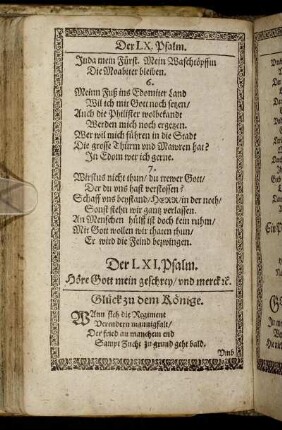 Der LX. Psalm.
Juda mein Fürst. Mein Waschtöpffin
Die Moabiter bleiben.
6.
Meinn Fuß ins Edomiter Land
Wil ich mit Gott noch setzen/
Auch die Philister wolbekandt
Werden mich noch ergetzen.
Wer wil mich führen in die Stadt
Die grosse Thürm vnd Mawren hat?
In Edom wer ich gerne.
7.
Wirstus nicht thun/ du trewer Gott/
Der du vns hast verstossen?
Schaff vns beystand/ HERR/ in der noth/
Sonst stehn wir ganz verlassen.
An Menschen hülff ist doch kein ruhm/
Mit Gott wollen wir thaten thun/
Er wird die Feind bezwingen.
Der LXI. Psalm.
Höre Gott mein geschrey/ vnd merck ꝛc.
Glück zu dem Könige.
WAnn sich die Regiment
Verendern mannigfalt/
Der fried an manchem end
Sampt Zucht zu grund geht bald,
Vmb